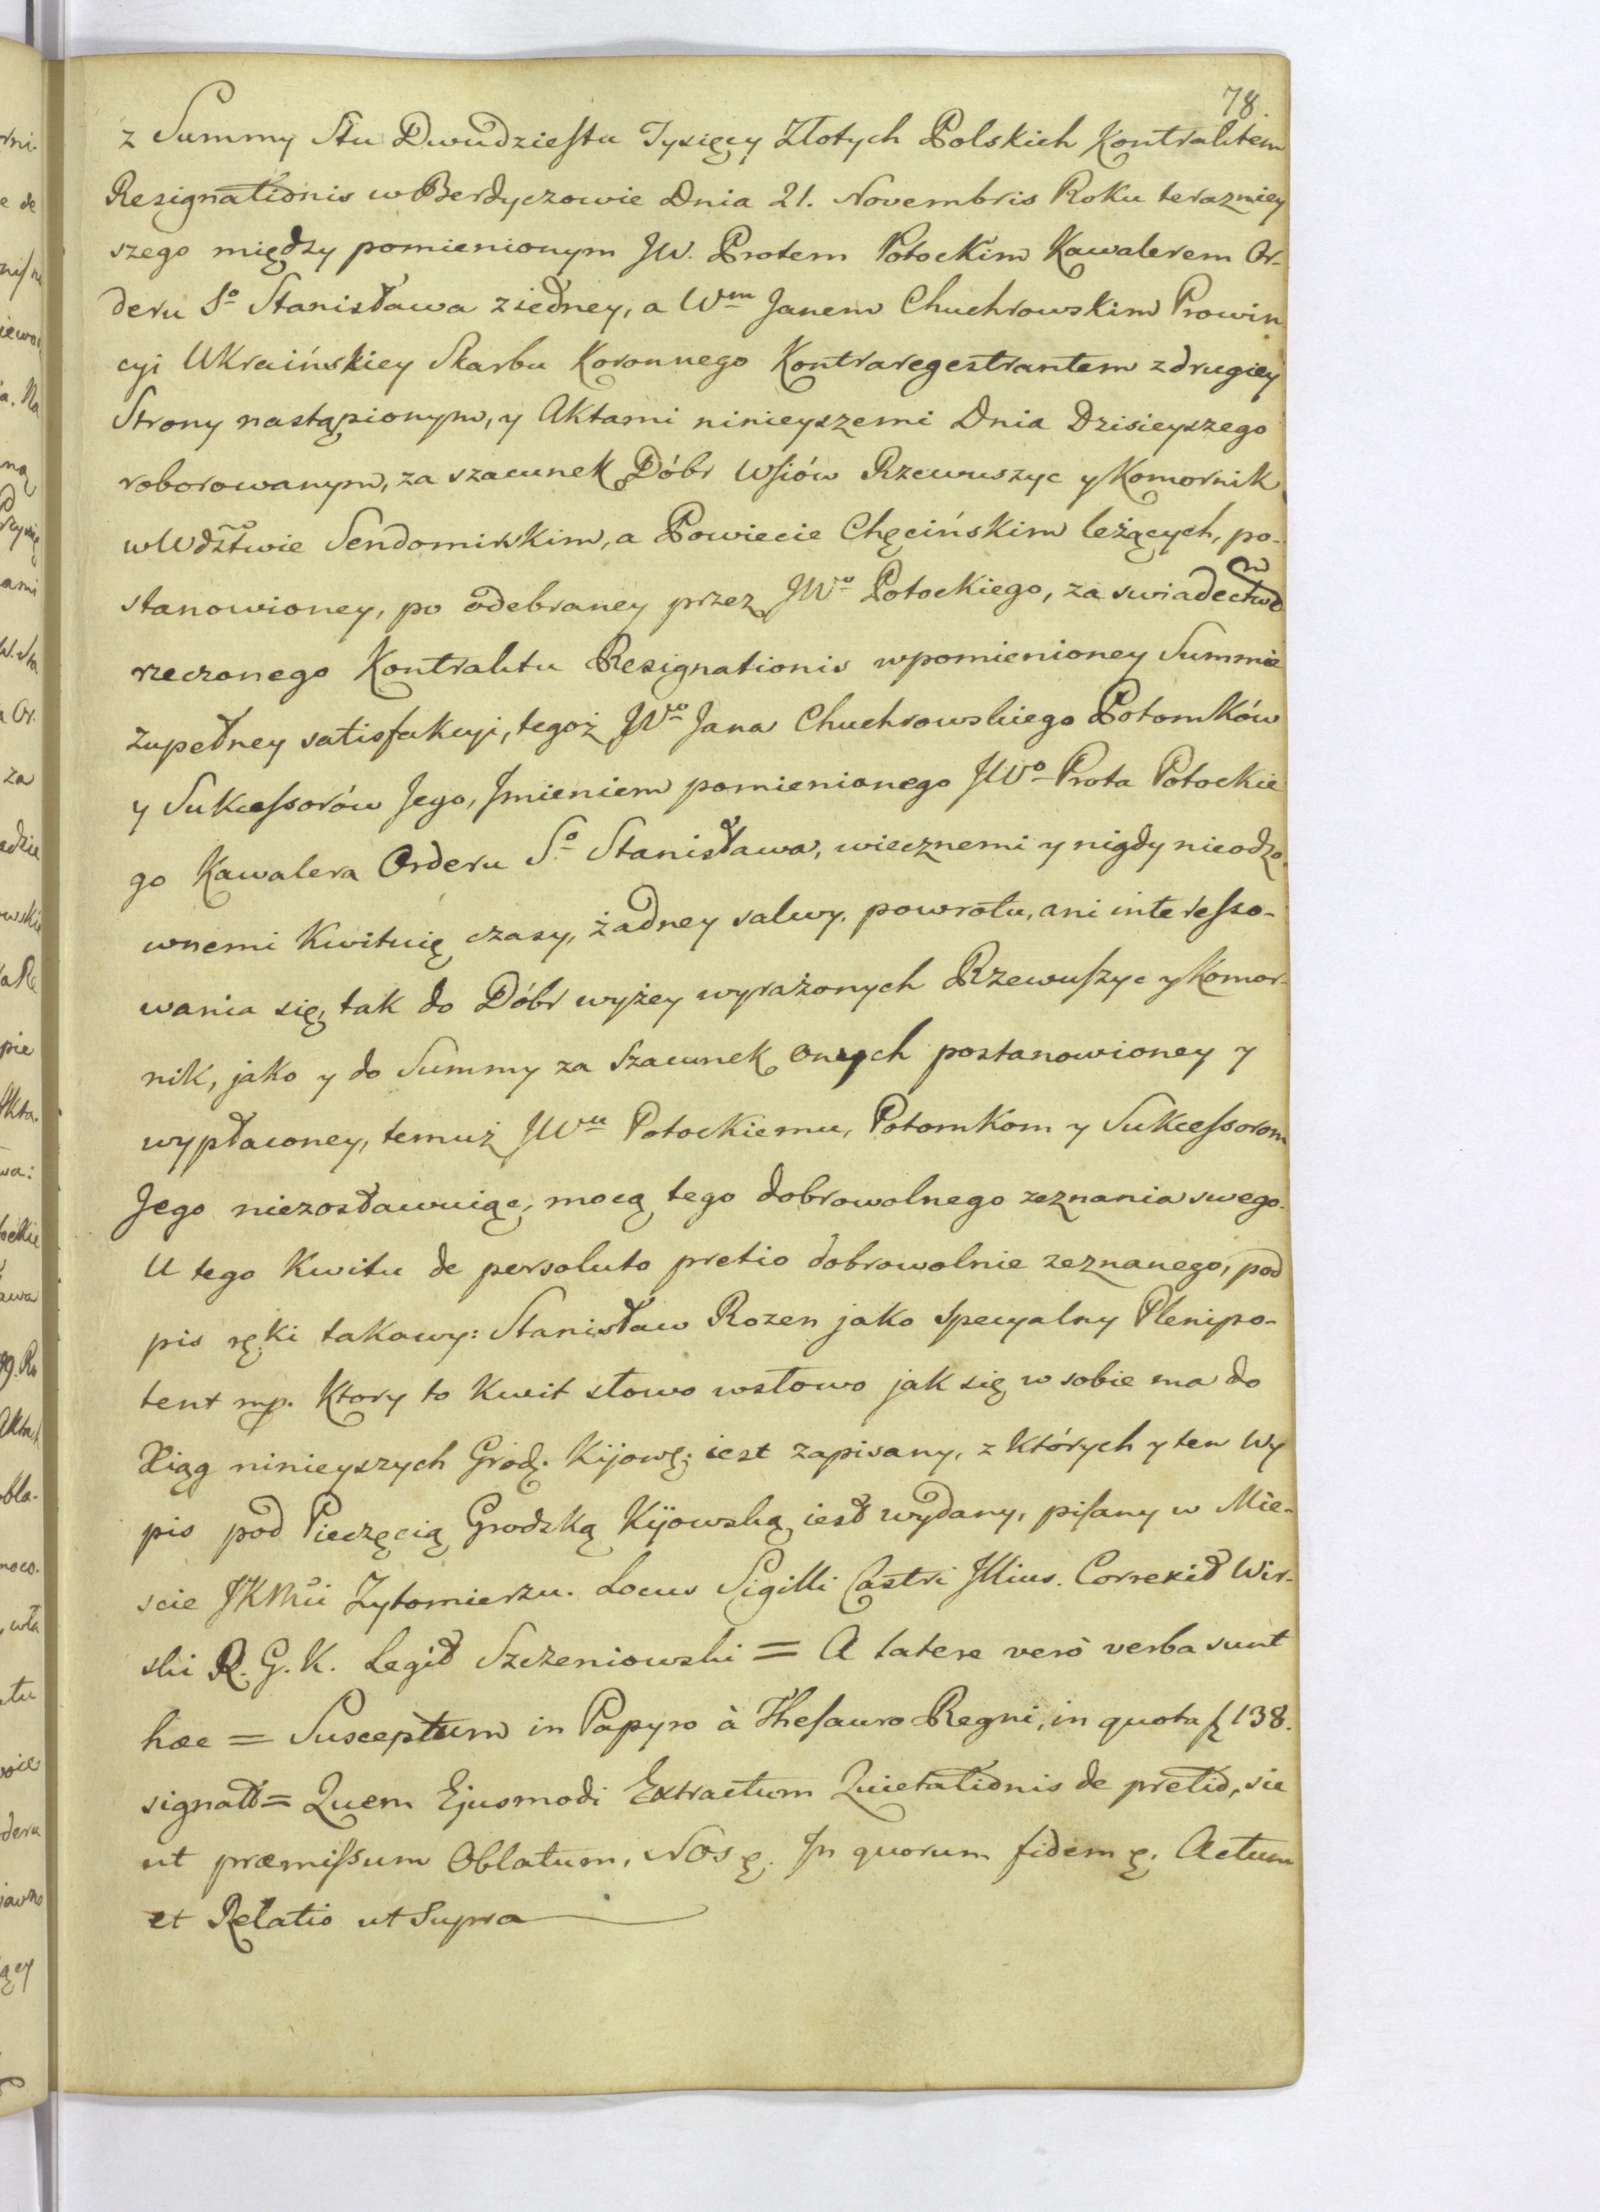 78.
z Summy Stu Dwudziestu Tysięcy Złotych Polskich Kontraktem
Resignationis w Berdyczowie Dnia 21. Novembris Roku terazniey
szego między pomienionym JW. Protem Potockim Kawalerem Or-
deru So Stanisława z iedney, a Wm Janem Chuchrowskim Prowin
cyi Ukraińskiey Skarbu Koronnego Kontraregestrantem z drugiey
Strony nastąpionym, y Aktami ninieyszemi Dnia Dzisieyszego
roborowanym, za szacunek Dóbr Wsiów Rzewuszyc y Komornik
w Wdztwie Sendomirskim, a Powiecie Chęcińskim leżących, po-
stanowioney, po odebraney przez JWo Potockiego, za swiadectwem
rzeczonego Kontraktu Resignationis w pomienioney Summie
zupełney satisfakcyi, tegoż JWo Jana Chuchrowskiego Potomków
y Sukcessorów Jego, Jmieniem pomienionego JWo Prota Potockie
go Kawalera Orderu So Stanisława, wiecznemi y nigdy nieodzo-
wnemi Kwituię czasy, żadney salwy. powrotu, ani interesso-
wania się, tak do Dóbr wyżey wyrażonych Rzewuszyc y Komor-
nik, jako y do Summy za Szacunek onych postanowioney y
wypłaconey, temuż JWu Potockiemu, Potomkom y Sukcessorom
Jego niezostawuiąc, mocą tego dobrowolnego zeznania swego.
U tego Kwitu de persoluto pretio dobrowolnie zeznanego, pod
pis ręki takowy: Stanisław Rozen jako Specyalny Plenipo-
tent mp. Ktory to Kwit słowo wsłowo jak się w sobie ma do
Xiąg ninieyszych Grodz. Kijows. iest zapisany, z których y ten Wy
pis pod Pieczęcią Grodzką Kijowską iest wydany, pisany w Mie-
scie JKMci Zytomierzu. Locus Sigilli Castri Illius. Correxit Wir-
ski R. G. K. Legit Szczeniowski = A latere verò verba sunt
hæc = Susceptum in Papyro à Thesauro Regni, in quota fl 138.
signato = Quem Ejusmodi Extractum Quietationis de pretio, sic
ut præmissum Oblatum, Nos etc. In quorum fidem etc. Actum
et Relatio ut Supra